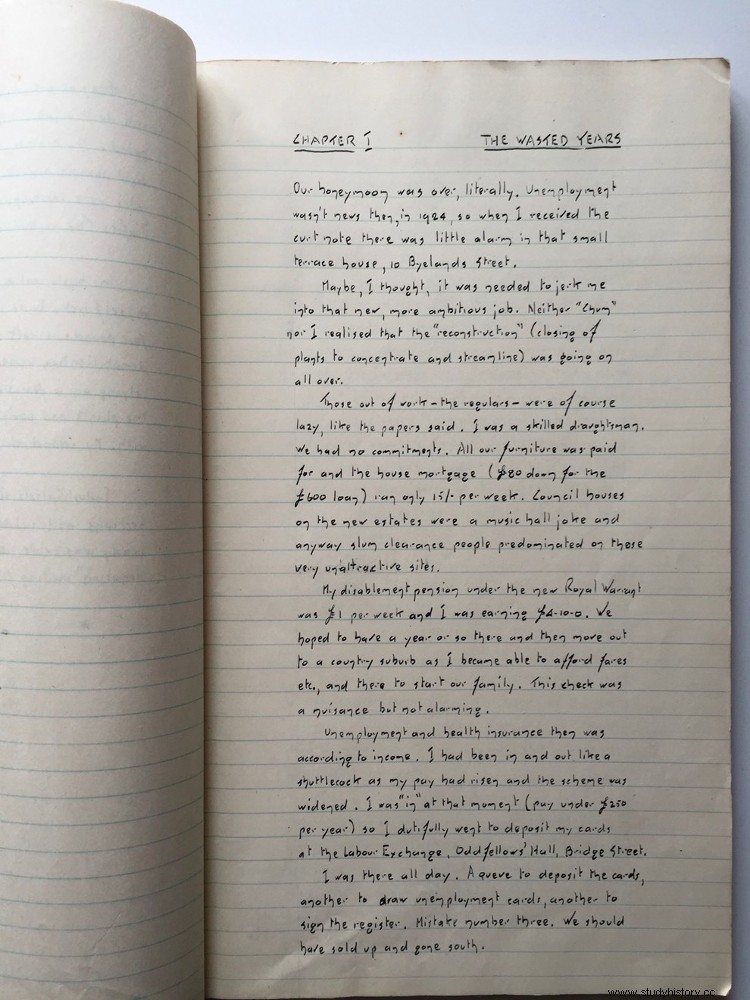 CHAPTER I THE WASTED YEARS
Our honeymoon was over, literally. Unemployment
wasn't news then, in 1924, so when I received the
curt note there was little alarm in that small
terrace house, 10 Byelands Street.
Maybe, I thought, it was needed to jerk me
into that new, more ambitious job. Neither "Chum"
nor I realised that the "reconstruction" (closing of
plants to concentrate and streamline) was going on
all over.
Those out of work – the regulars – were of course
lazy, like the papers said. I was a skilled draughtsman.
We had no commitments. All our furniture was paid
for and the house mortgage (£80 down for the
£600 loan) ran only 15/- per week. Council houses
on the new estates were a music hall joke and
anyway slum clearance people predominated on these
very unattractive sites.
My disablement pension under the new Royal Warrant
was £1 per week and I was earning £4-10-0. We
hoped to have a year or so there and then move out
to a country suburb as I became able to afford fares
etc, and there to start our family. This check was
a nuisance but not alarming.
Unemployment and health insurance then was
according to income. I had been in and out like a
shuttlecock as my pay had risen and the scheme was
widened. I was "in" at that moment (pay under £250
per year) so I dutifully went to deposit my cards
at the Labour Exchange, Oddfellows' Hall, Bridge Street.
I was there all day. A queue to deposit the cards,
another to draw unemployment cards, another to
sign the register. Mistake number three. We should
have sold up and gone south.
www.studyhistory.cc